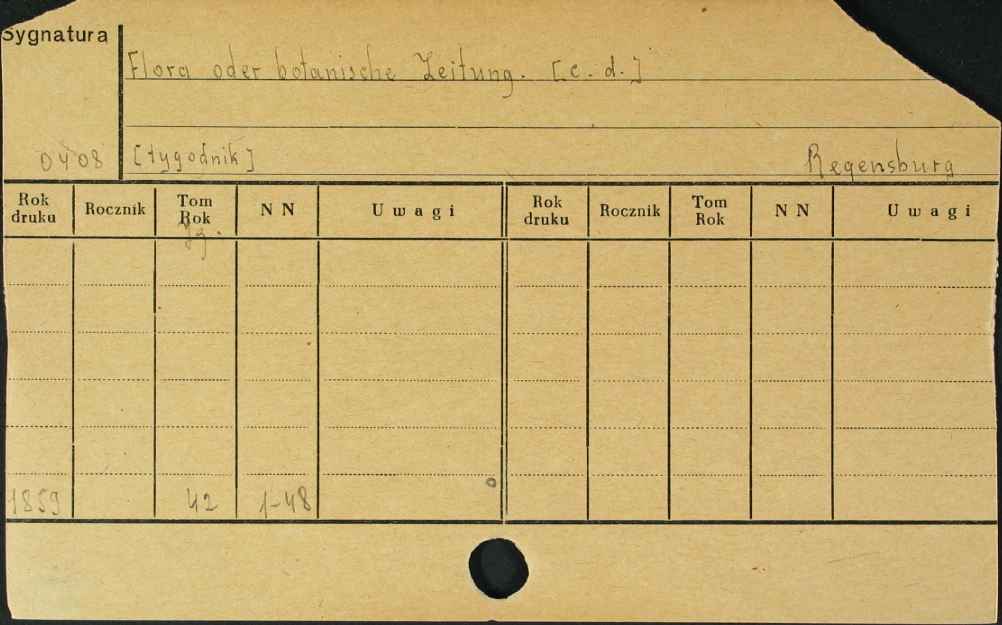 Sygnatura
Flora oder botanische Zeitung. [c. d.]
0408 [tygodnik] Regensburg
Rok druku Rocznik Tom Rok NN Uwagi Rok druku Rocznik Tom Rok NN Uwagi
Jg.
1859 42 1-48